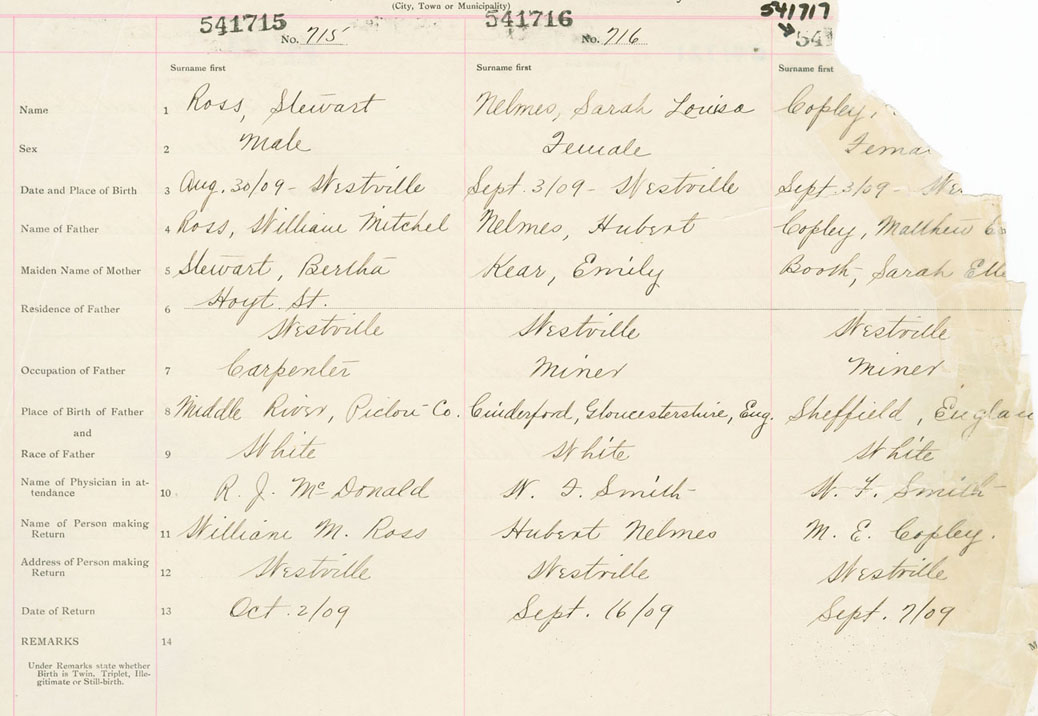 (City, Town or Municipality)
541715 541716 541717
No. 715 No. 716 54
Surname first Surname first Surname first
Name 1 Ross, Stewart Nelmes, Sarah Louisa Copley,
Sex 2 Male Female Fema
Date and Place of Birth 3 Aug. 30/09 - Westville Sept. 3/09 - Westville Sept. 3/09 - Wes
Name of Father 4 Ross, William Mitchel Nelmes, Hubert Copley, Matthew
Maiden Name of Mother 5 Stewart, Bertha Kear, Emily Booth, Sarah Elle
Residence of Father 6 Hoyt St.
Westville Westville Westville
Occupation of Father 7 Carpenter Miner Miner
Place of Birth of Father 8 Middle River, Pictou Co. Cinderford, Gloucestershire, Eng. Sheffield, Englan
and
Race of Father 9 White White White
Name of Physician in at-
tendance 10 R. J. McDonald W. F. Smith W. F. Smith
Name of Person making
Return 11 William M. Ross Hubert Nelmes M. E. Copley.
Address of Person making
Return 12 Westville Westville Westville
Date of Return 13 Oct. 2/09 Sept. 16/09 Sept. 7/09
REMARKS 14
Under Remarks state whether
Birth is Twin, Triplet, Ille-
gitimate or Still-birth.